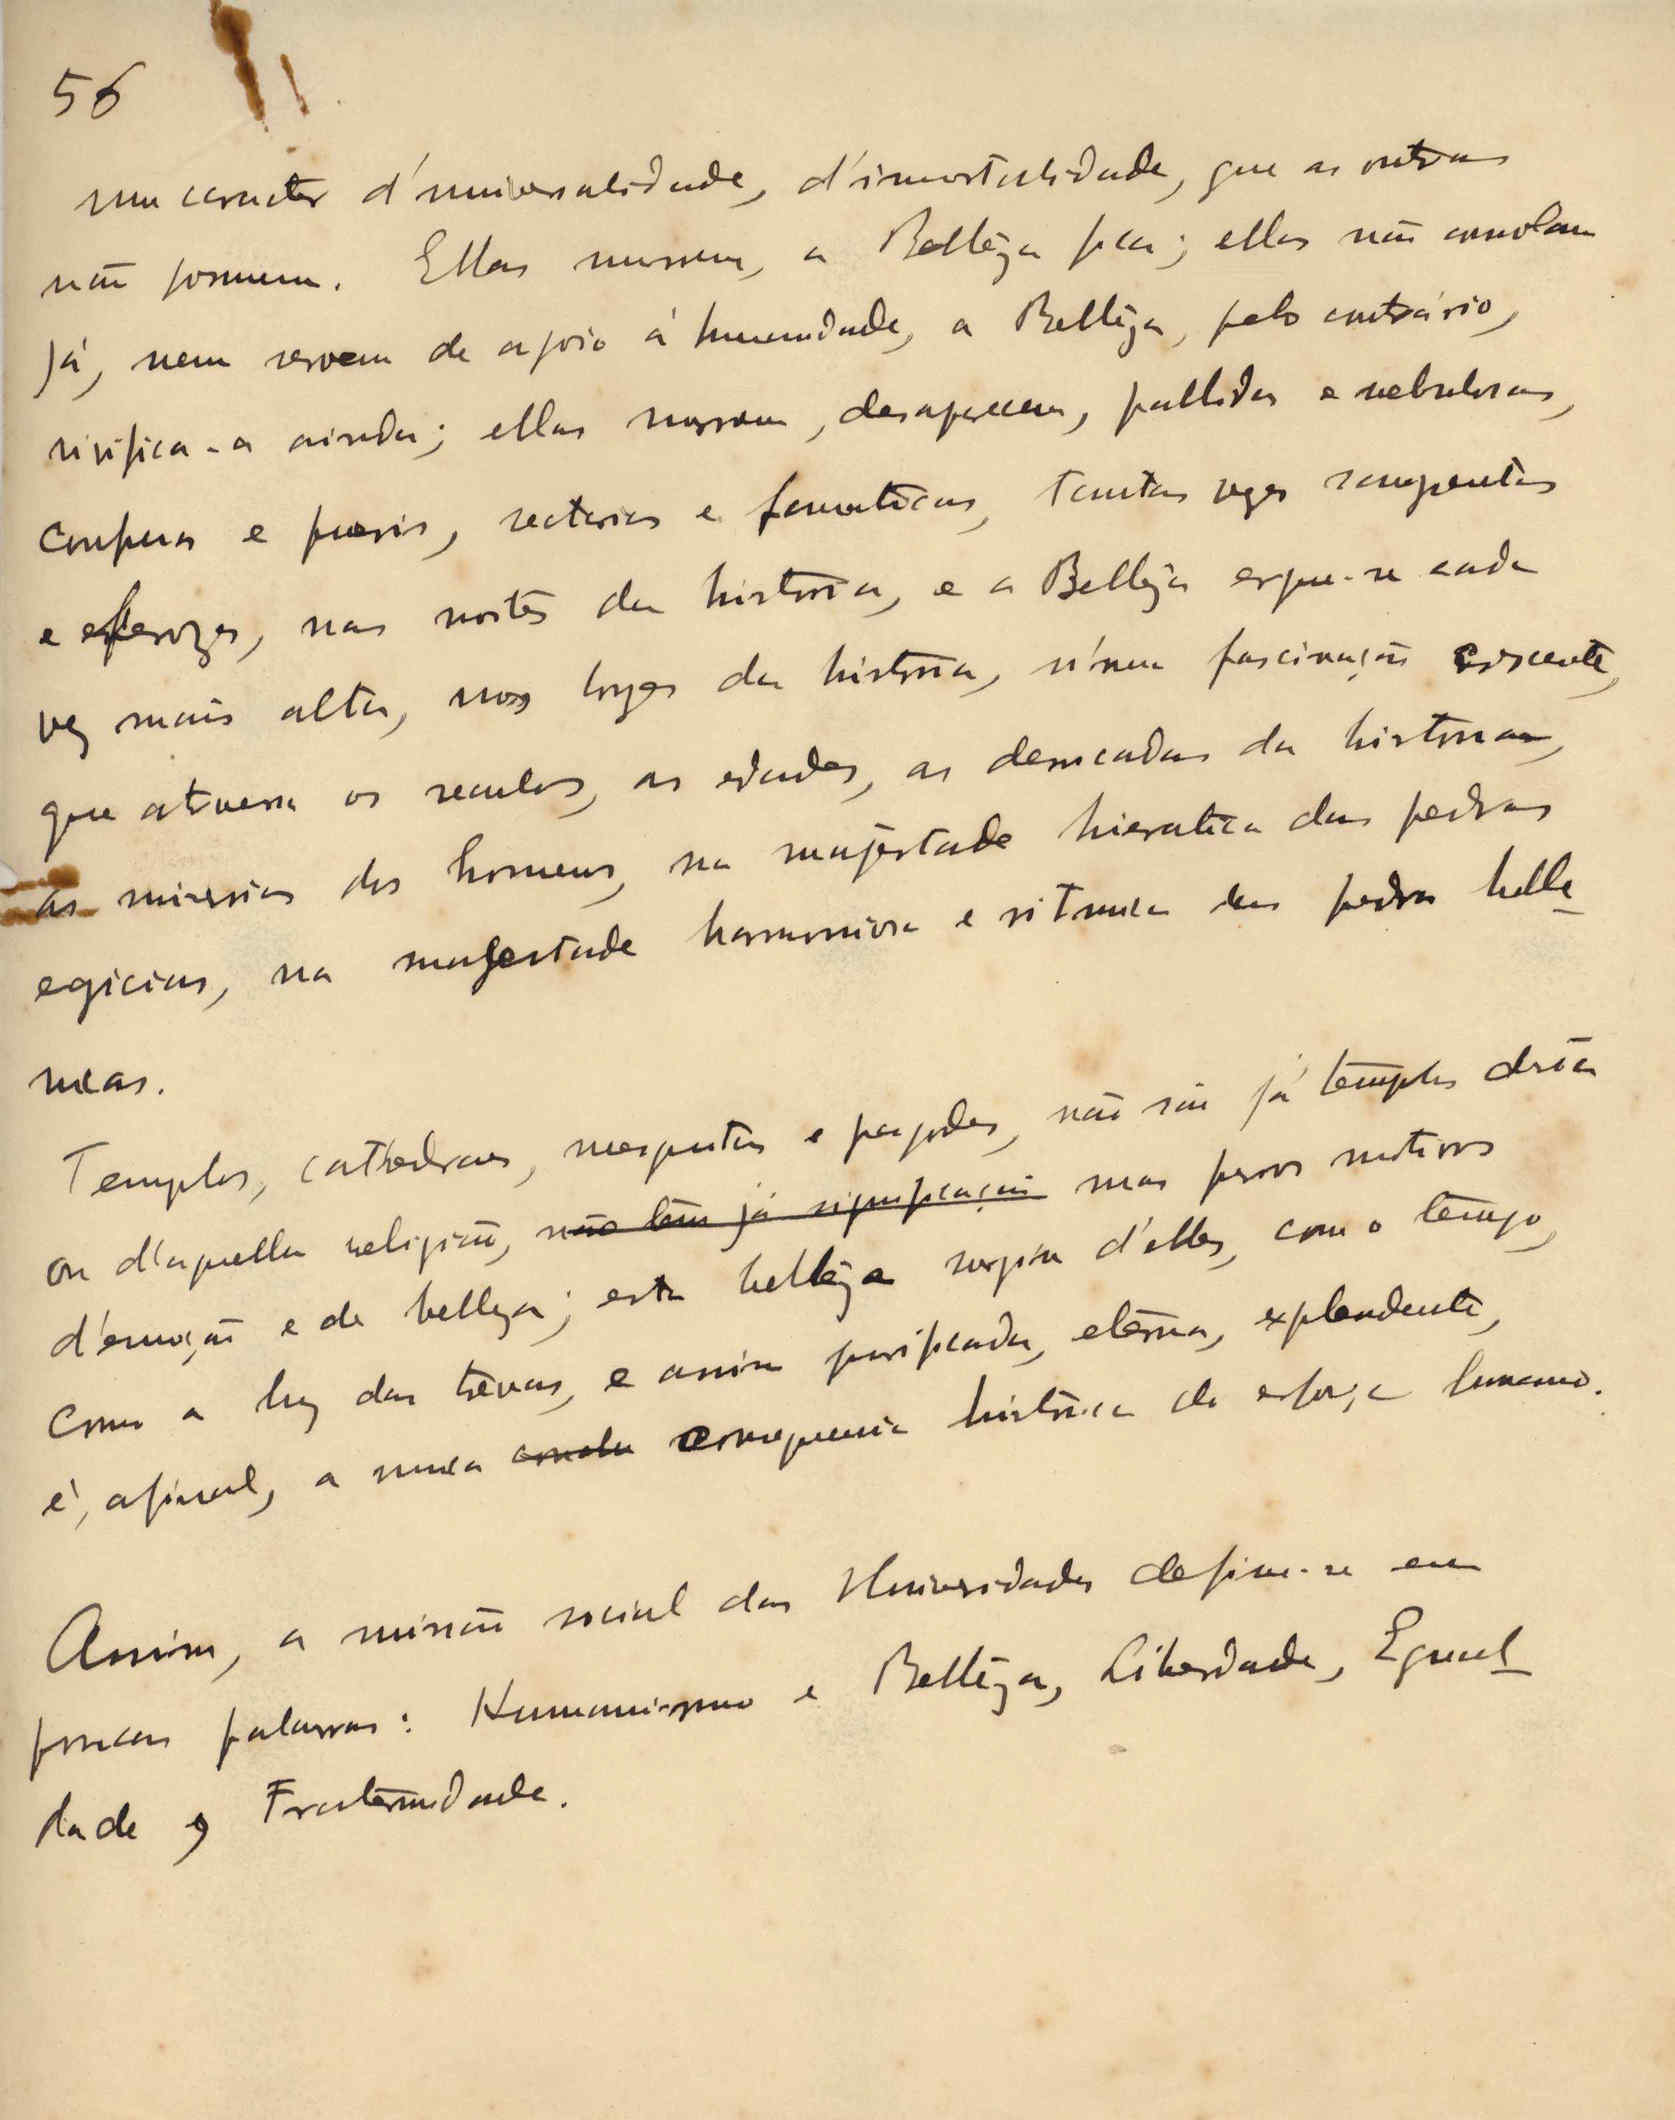 56
um caracter d'universalidade, d'immortalidade, que as outras
não possuem. Ellas morrem, a Bellêza fica; ellas não consolam
já, nem servem de apoio á humanidade, a Bellêza, pelo contrário,
vivifica-a ainda; ellas morrem, desaparecem, pallidas e nebulosas,
confusas e pueris, sectarias e fanaticas, tantas vezes sangrentas
e ferozes, nas noites da historia, e a Bellêza ergue-se cada
vez mais alta, nas luzes da historia, n'uma fascinação crescente,
que atravessa os seculos, as edades, as derrocadas da historia,
as miserias dos homens, na majestade hieratica das pedras
egicias, na majestade harmoniosa e ritmica das pedras helle
nicas.
Templos, cathedraes, mesquitas e pagodes, não são já templos desta
ou d'aquella religião, não têm já significação mas puros motivos
d'emoção e de belleza; esta bellêza surgiu d'elles, com o tempo,
como a luz das trevas, e assim purificada, eterna, explendente,
é, afinal, a unica consequencia histórica do esforço humano.
Assim, a missão social das Universidades define-se em
poucas palavras: Humanismo e Bellêza, Liberdade, Egual
dade e Fraternidade.